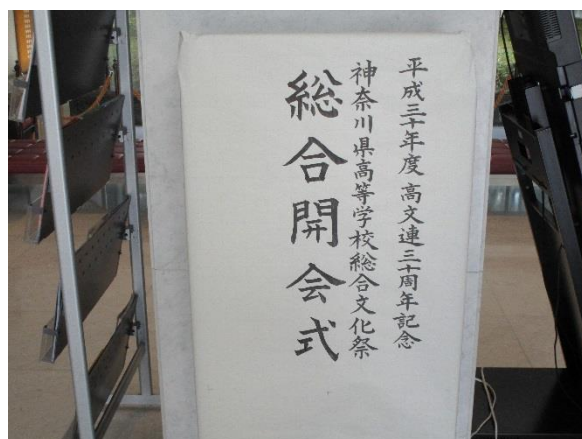 平成三十年度 高文連三十周年記念
神奈川県高等学校総合文化祭
総合開会式